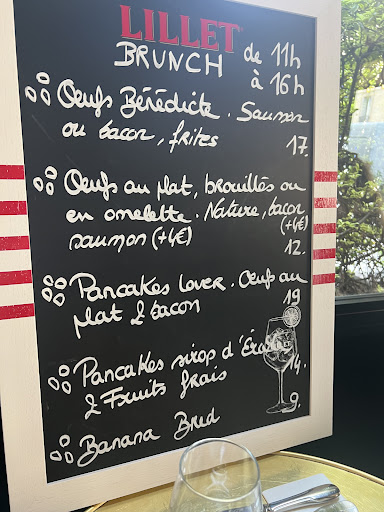 LILLET
BRUNCH de 11h
à 16h
Oeufs Bénédicte. Saumon
ou bacon, frites
17.
Oeufs au plat, brouillés ou
en omelette. Nature, bacon
(+4€)
saumon (+4€)
12.
Pancakes Lover. Oeufs au
plat & bacon
19
Pancakes sirop d'Érable
14.
& Fruits frais
9.
Banana Bred